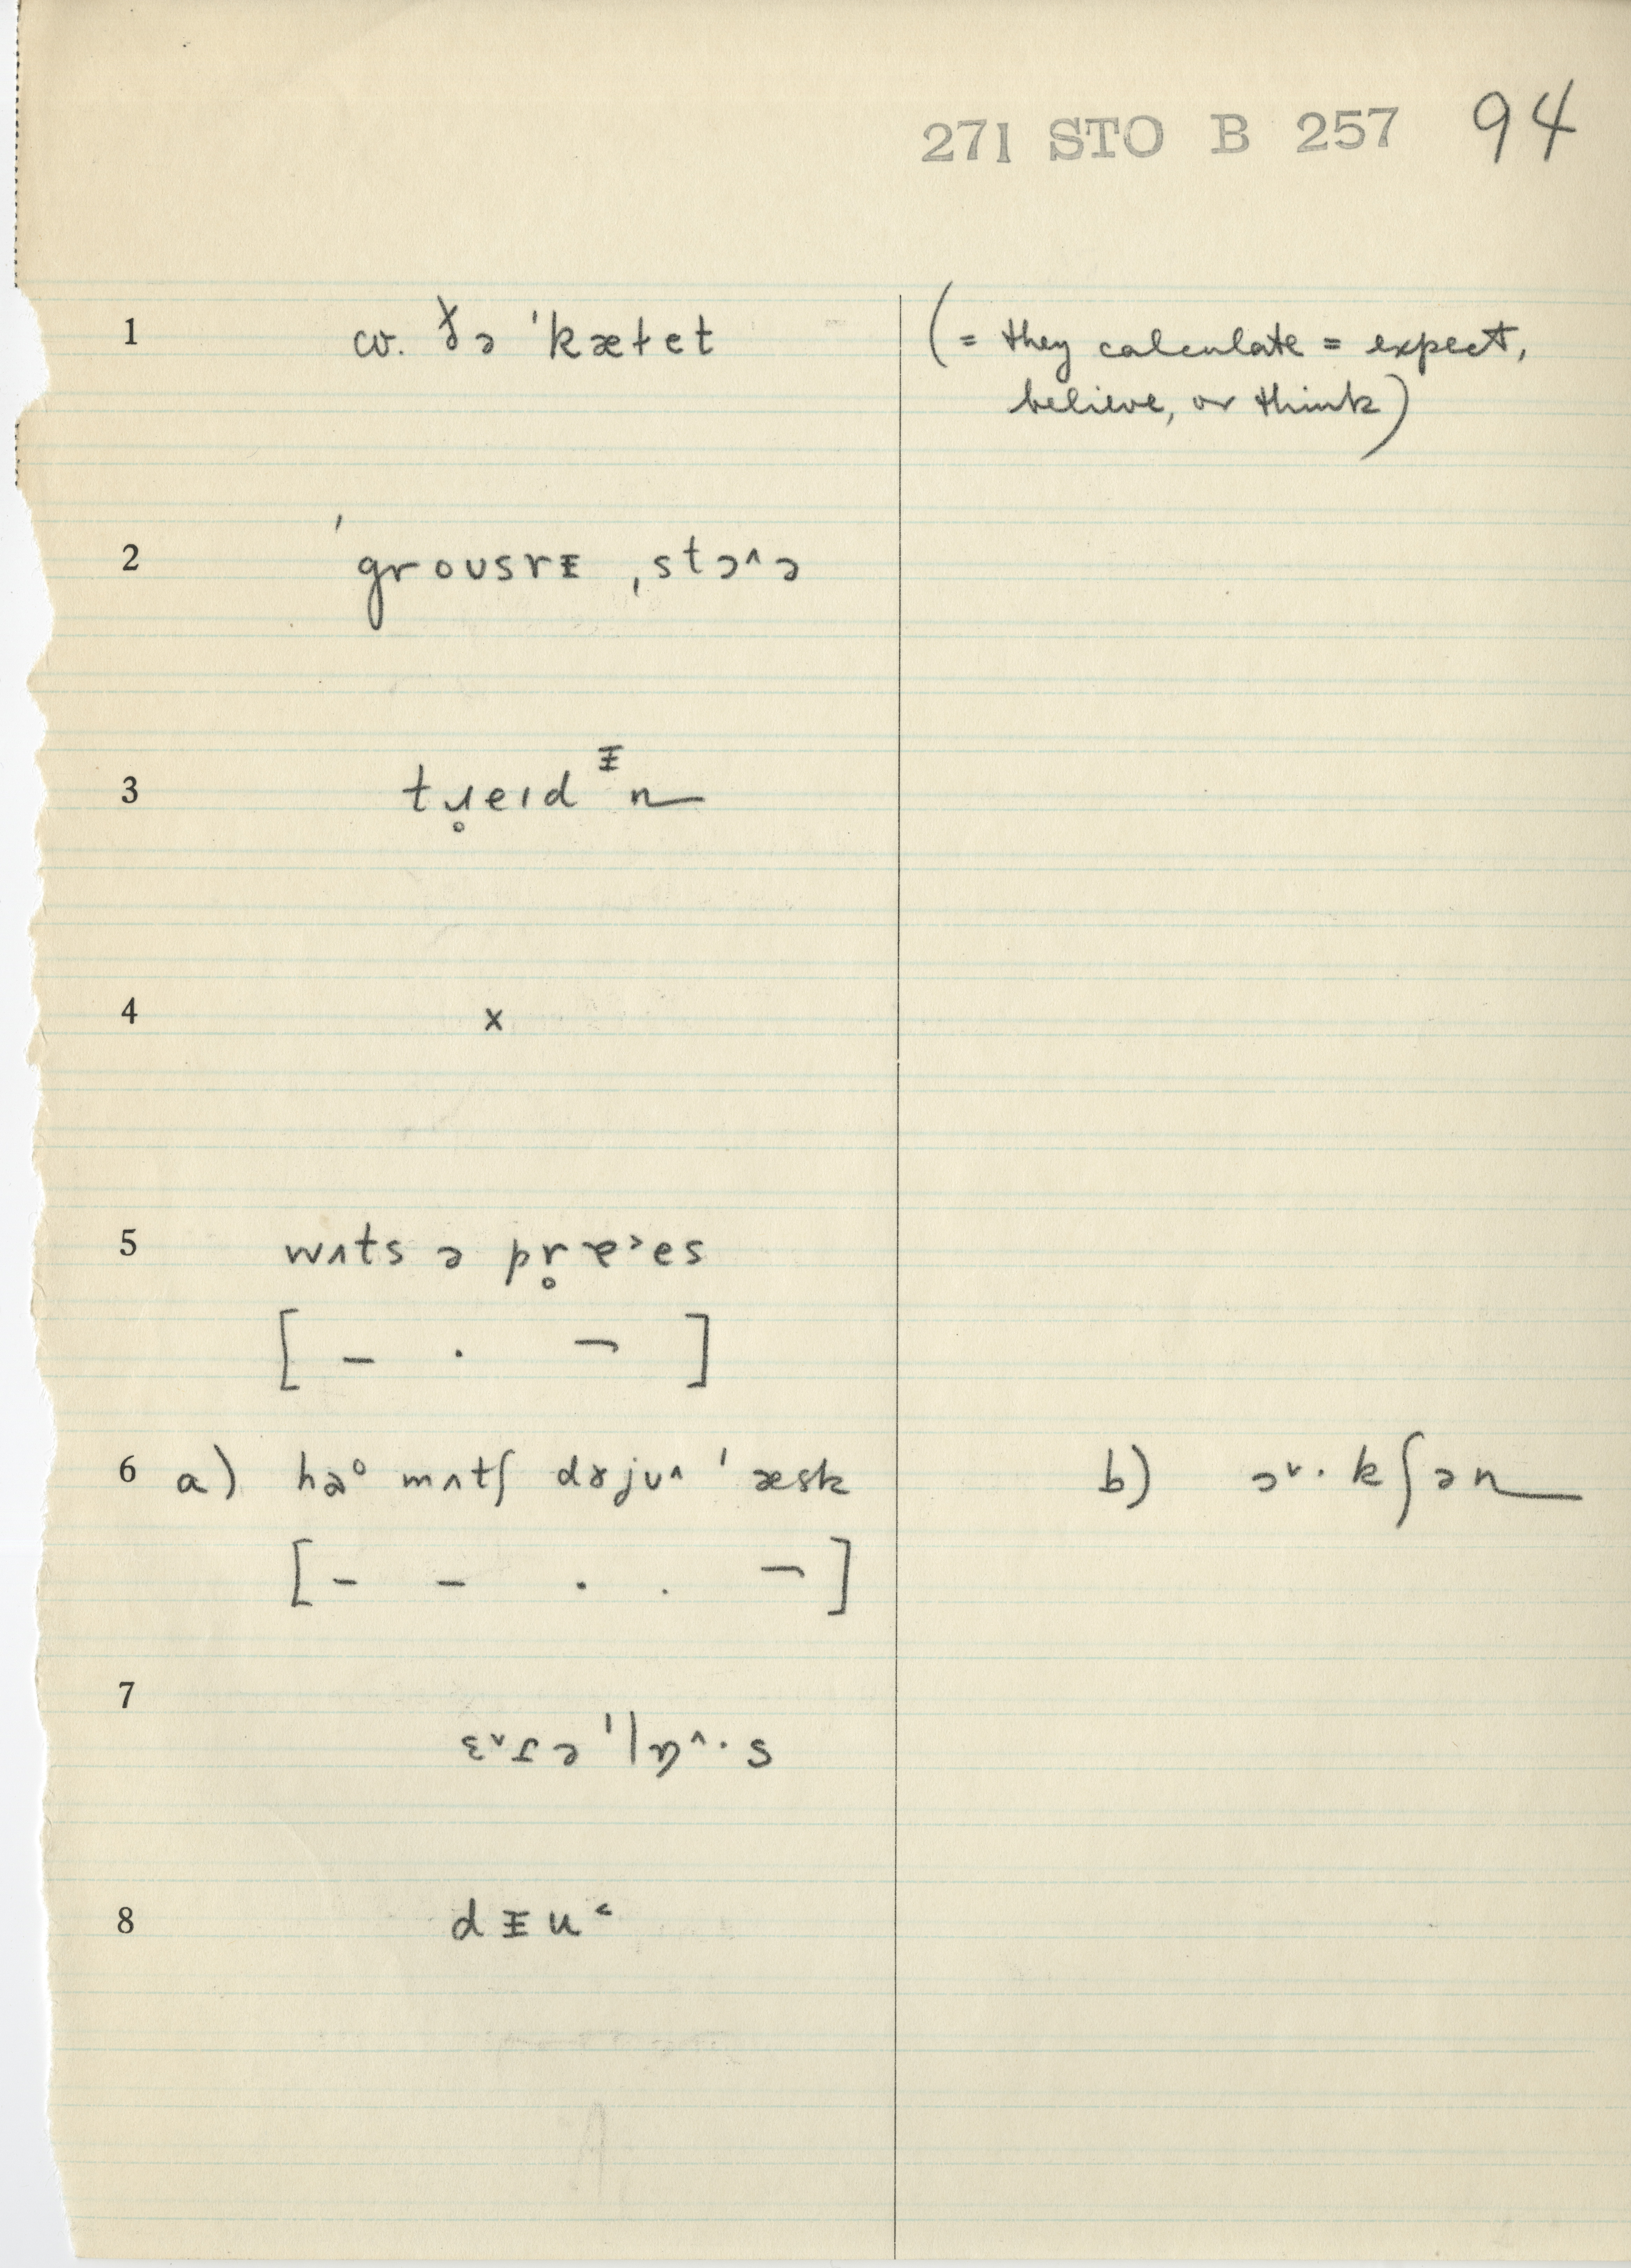 271 STO B 257 94
1 cv. ðə ˈkæɫet (= they calculate = expect,
believe, or think)
2 ˈgroʊsrᵻ ˌstɔ^ə
3 tɹ̥eɪdᵻn
4 x
5 wʌts ə pr̥ɐ˃es
[ – · ¬ ]
6 a) hɑ° mʌtʃ dɤjʊ^ ˈæsk b) ɔ˅· kʃən
[ – – · · ¬ ]
7
8 dᵻu˂